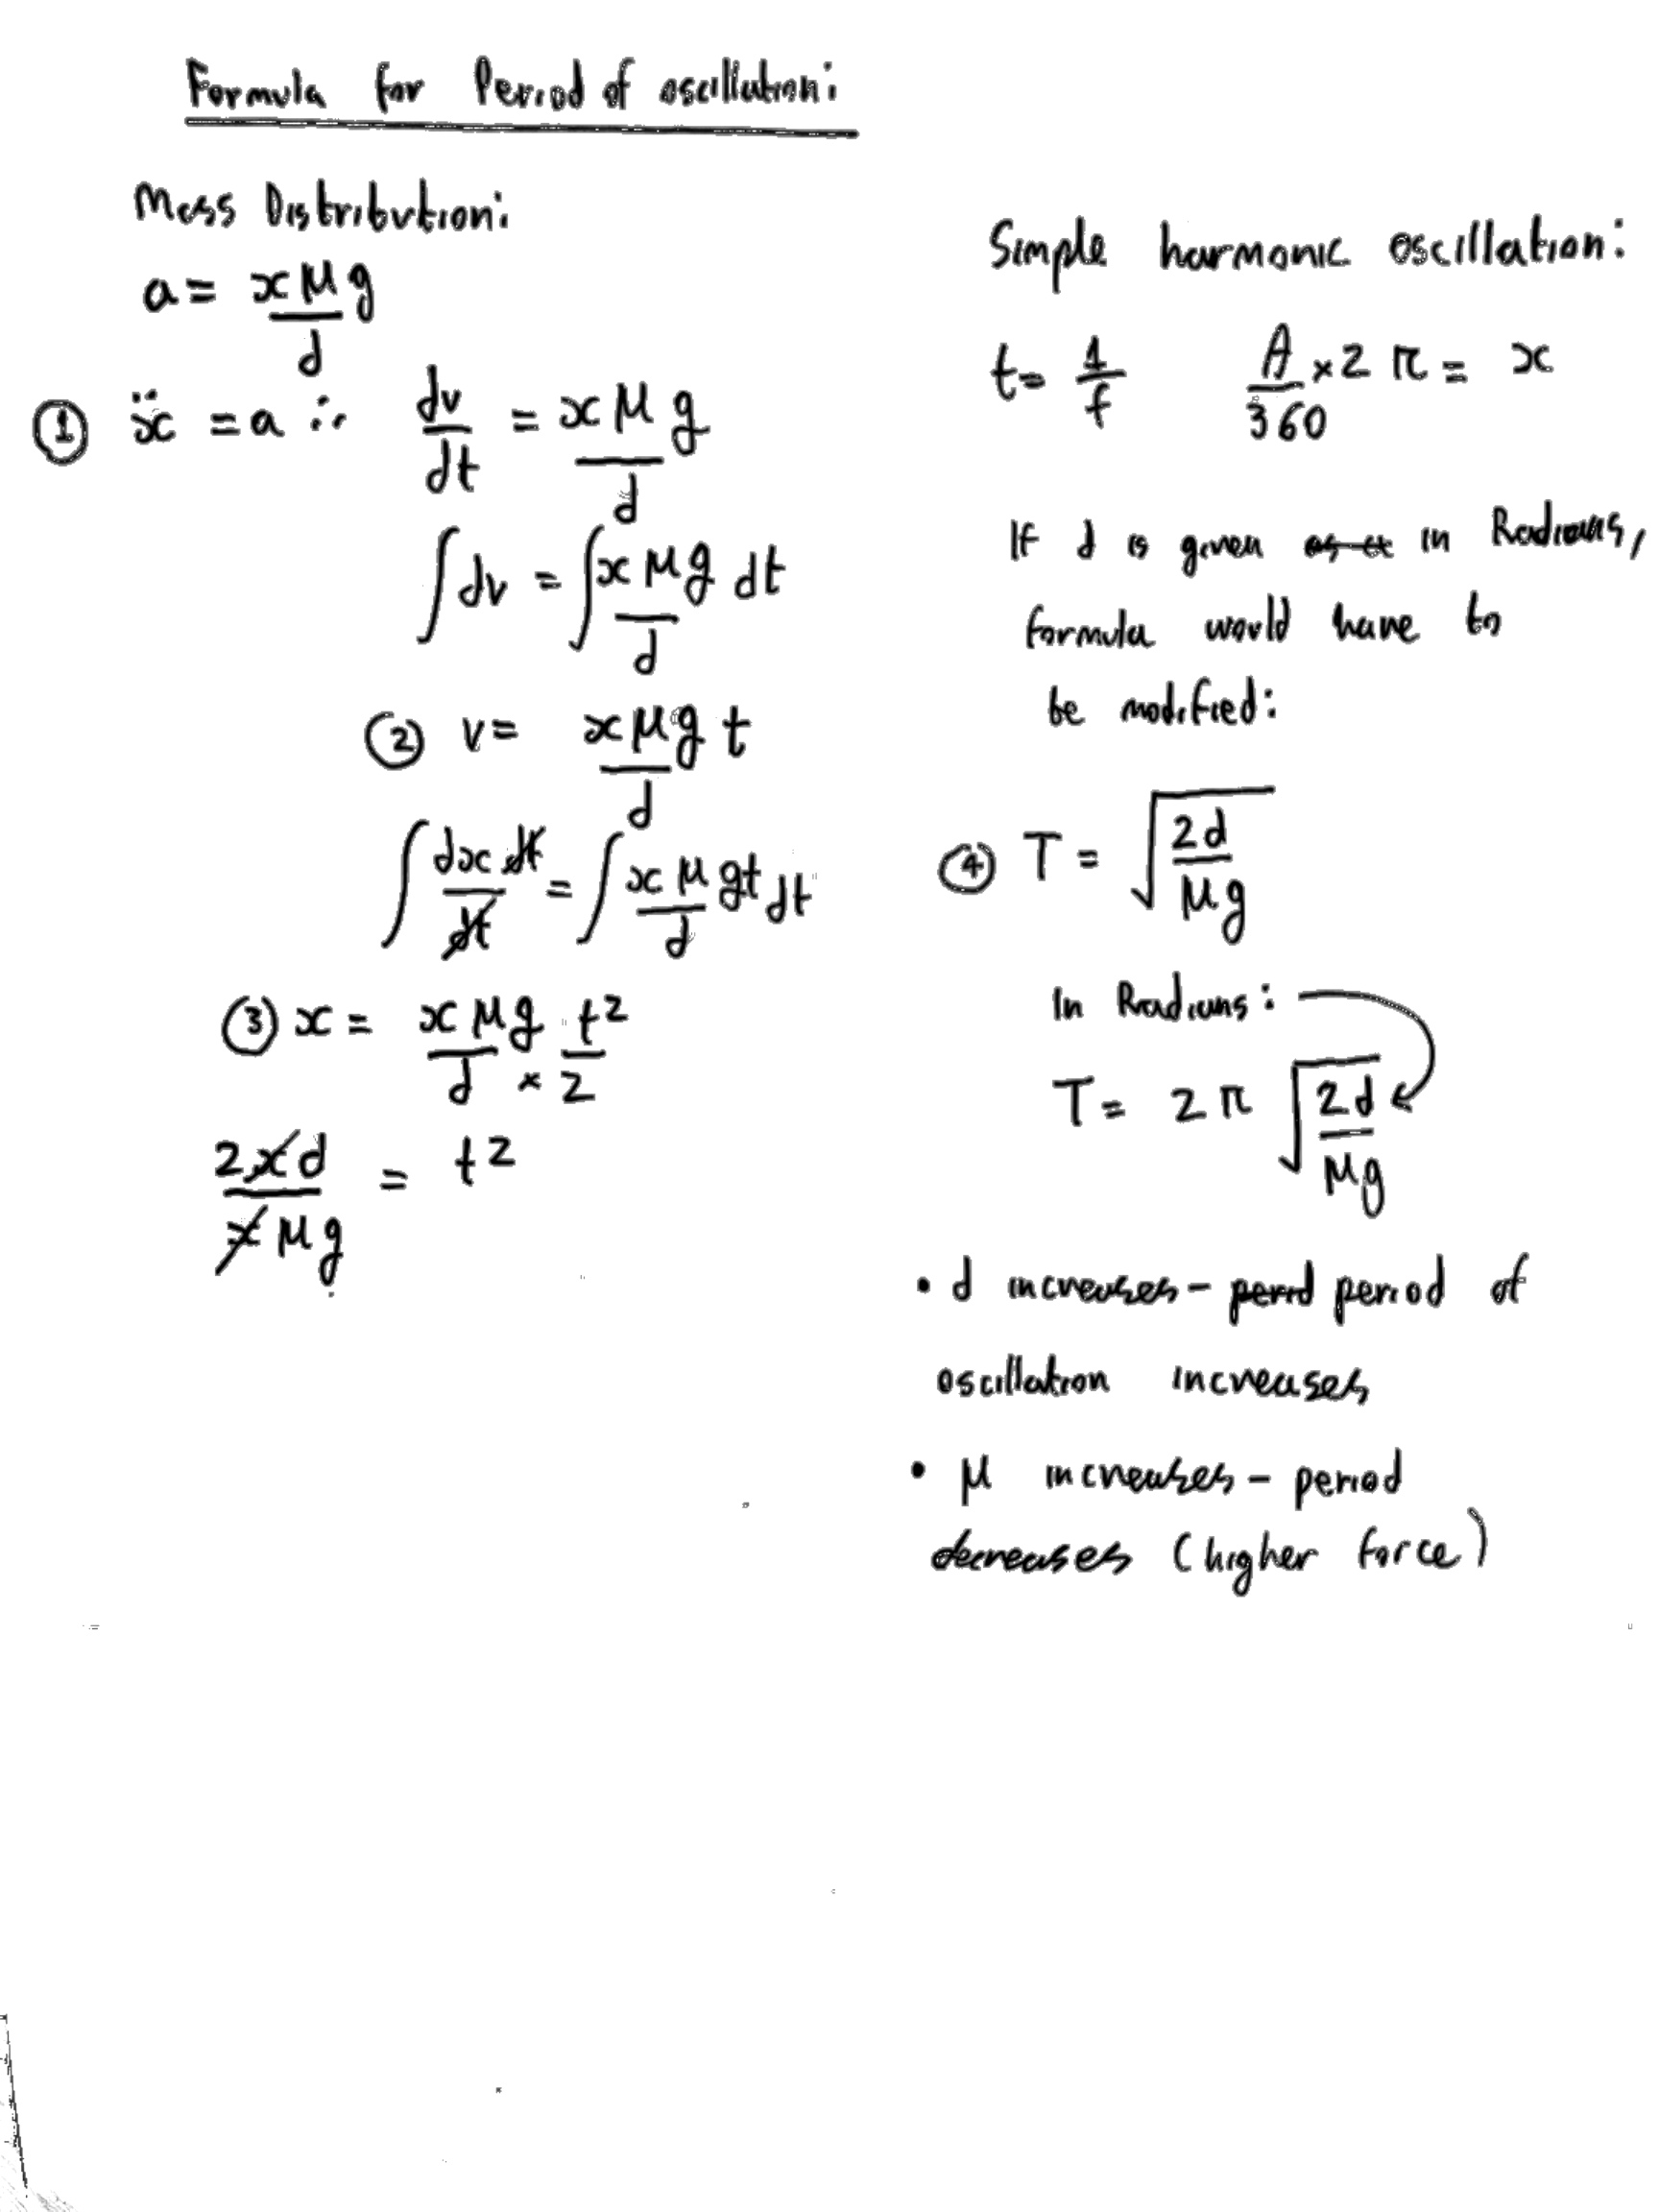 Formula for Period of oscillation:
Mass Distribution:
a = xμg/d
① ẍ = a ∴ dv/dt = xμg/d
∫dv = ∫xμg/d dt
② v = xμg/d t
∫dx dt/dt = ∫xμ/d gt dt
③ x = xμg/d × t²/2
2xd/xμg = t²
Simple harmonic oscillation:
t = 1/f A/360 × 2π = x
If d is given as a in Radians,
formula would have to
be modified:
④ T = √(2d/μg)
In Radians:
T = 2π √(2d/μg)
• d increases - perid period of
oscillation increases
• μ increases - period
decreases (higher force)